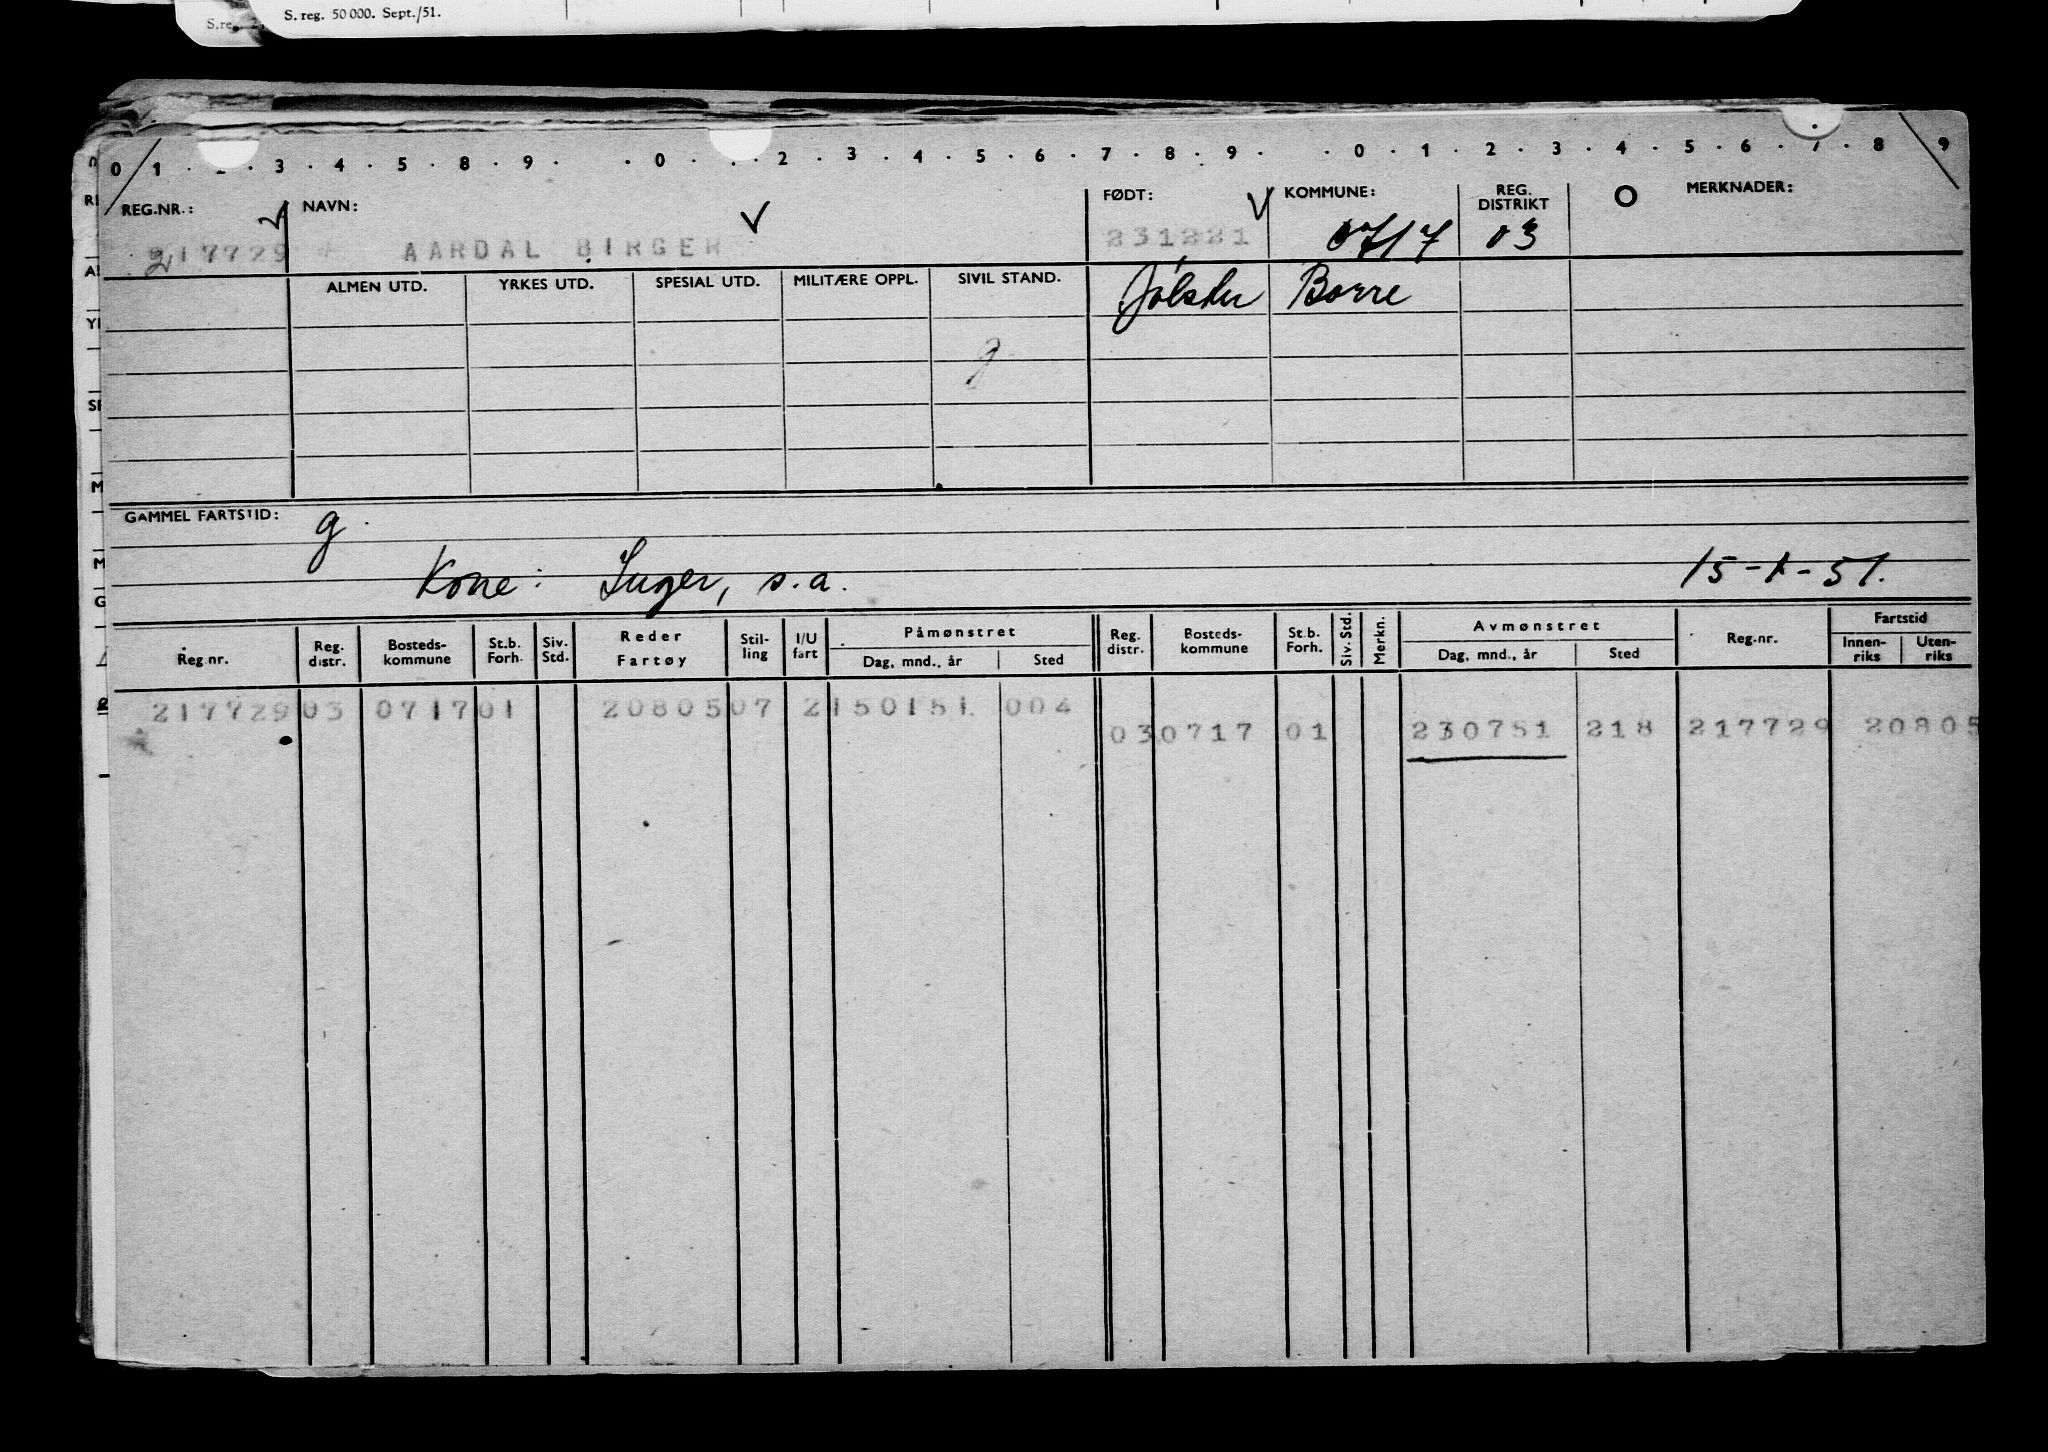 S. reg. 50 000. Sept./51.
0 1 . . 3 . 4 . 5 . 8 . 9 . . 0 . . 2 . 3 . 4 . 5 . 6 . 7 . 8 . 9 . . 0 . 1 . 2 . 3 . 4 . 5 . 6 . 7 . 8 9
REG.NR.: NAVN: FØDT: KOMMUNE: REG. DISTRIKT MERKNADER:
217729 AARDAL BIRGER 231221 0717 03
ALMEN UTD. YRKES UTD. SPESIAL UTD. MILITÆRE OPPL. SIVIL STAND. Jølster Borre
g
GAMMEL FARTSTID: g.
Kone: Inger, s.a. 15-1-51.
Reg.nr. Reg. distr. Bosteds-kommune St.b. Forh. Siv. Std. Reder Fartøy Stil-ling I/U fart Påmønstret Dag, mnd., år Sted Reg. distr. Bosteds-kommune St.b. Forh. Siv. Std. Merkn. Avmønstret Dag, mnd., år Sted Reg.nr. Fartstid Innen-riks Uten-riks
217729 03 0717 01 20805 07 2 150151 004
03 0717 01 230751 218 217729 20805